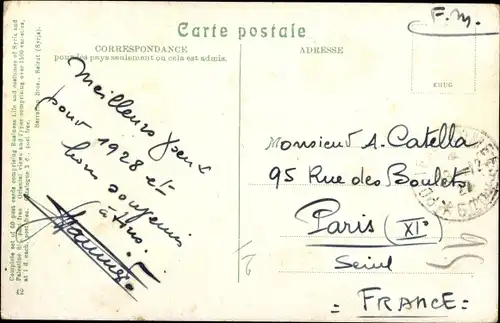 Carte postale
CORRESPONDANCE
pour les pays seulement ou cela est admis.
ADRESSE
F.M.
KHUG
Meilleurs Voeux
pour 1928 et
bons souvenirs
à tous.
Monsieur A. Catella
95 Rue des Boulets
Paris (XIº)
Seine
= FRANCE =
Complete set of 60 post cards comprising Business Life and costumes of Syria and
Palestine
Oriental views and types comprising over 1500 varieties,
at 1 d. each, post free.
Sarrafian Bros., Beirut (Syria).
42